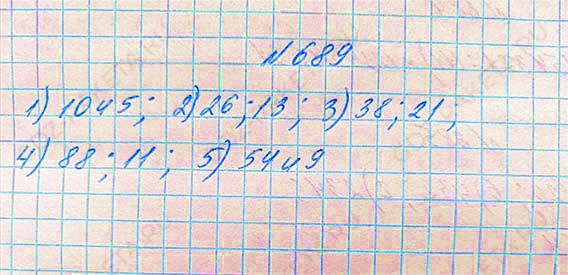 №689
1) 10 и 5; 2) 26; 13; 3) 38; 21;
4) 88; 11; 5) 54 и 9